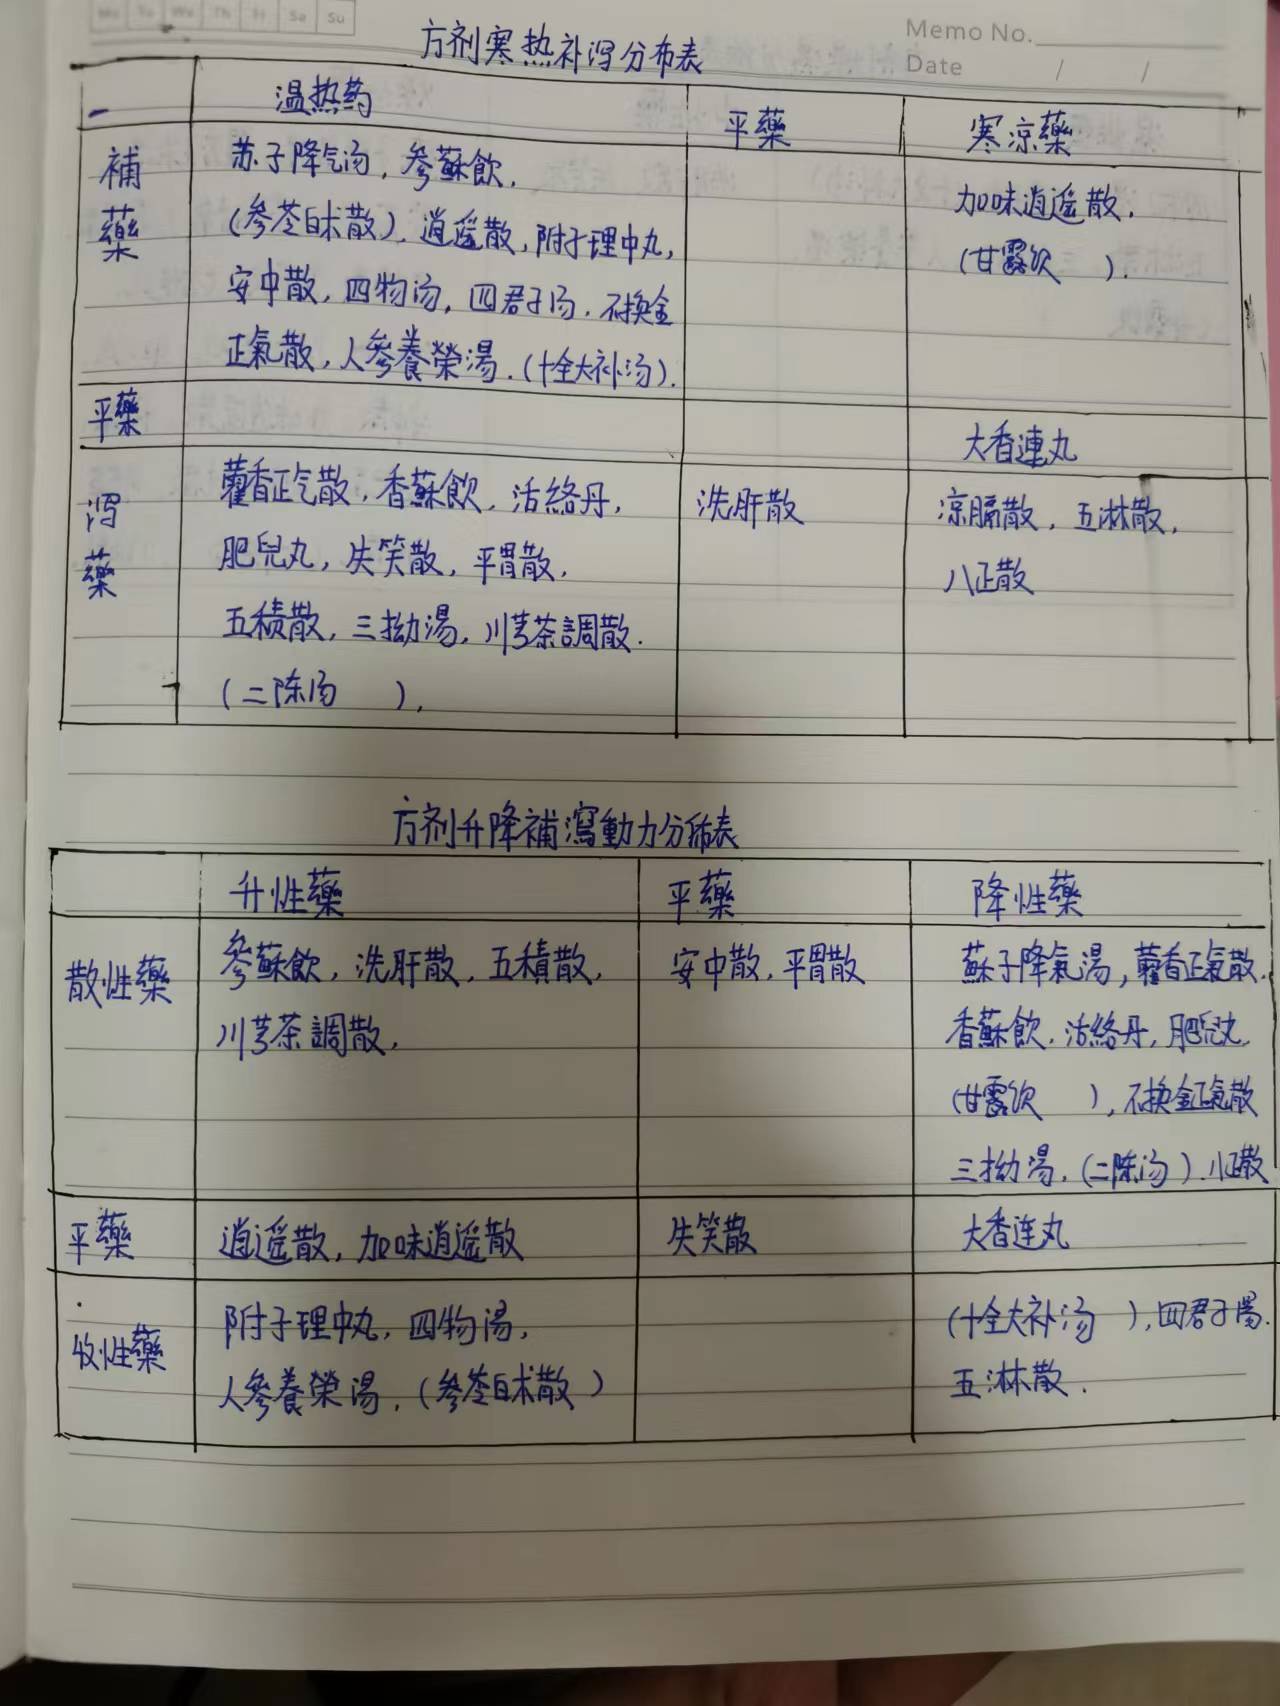 Mo Tu We Th Fr Sa Su
Memo No.
Date / /
方剂寒热补泻分布表
温热药 平藥 寒凉藥
補藥
苏子降气汤，參蘇飲，
(參苓白术散)，逍遥散，附子理中丸，
安中散，四物汤，四君子汤，不换金
正氣散，人參養榮湯．(十全大补汤)．
加味逍遥散，
(甘露饮 )．
平藥 大香連丸
泻藥
藿香正气散，香蘇飲，活絡丹，
肥兒丸，失笑散，平胃散，
五積散，三拗湯，川芎茶調散．
(二陈汤 )，
洗肝散
凉膈散，五淋散，
八正散
方剂升降補瀉動力分佈表
升性藥 平藥 降性藥
散性藥
參蘇飲，洗肝散，五積散，
川芎茶調散，
安中散，平胃散
蘇子降氣湯，藿香正氣散，
香蘇飲，活絡丹，肥兒丸，
(甘露饮 )，不换金正氣散
三拗湯，(二陈汤 )．八正散
平藥 逍遥散，加味逍遥散 失笑散 大香连丸
收性藥
附子理中丸，四物湯，
人參養榮湯，(參苓白术散 )
(十全大补汤 )，四君子湯．
五淋散．